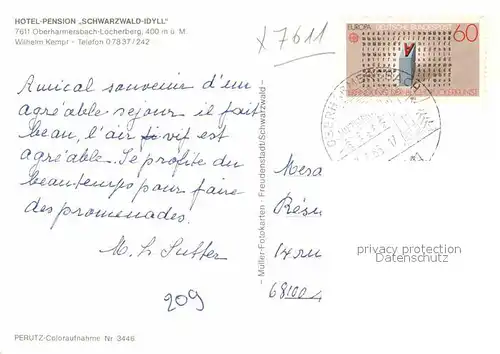 HOTEL-PENSION „SCHWARZWALD-IDYLL"
7611 Oberharmersbach-Löcherberg, 400 m ü. M.
Wilhelm Kempf - Telefon 0 78 37 / 242
x 7611
EUROPA DEUTSCHE BUNDESPOST 60
ERFINDUNG DER BUCHDRUCKERKUNST
Amical souvenir d'un
agréable sejour il fait
beau, l'air vif est
agréable. Je profite du
beau temps pour faire
des promenades.
M. L Sutter
209
Mesa
Résu
14 ru
68100
privacy protection
Datenschutz
– Müller-Fotokarten - Freudenstadt/Schwarzwald –
PERUTZ-Coloraufnahme Nr 3446